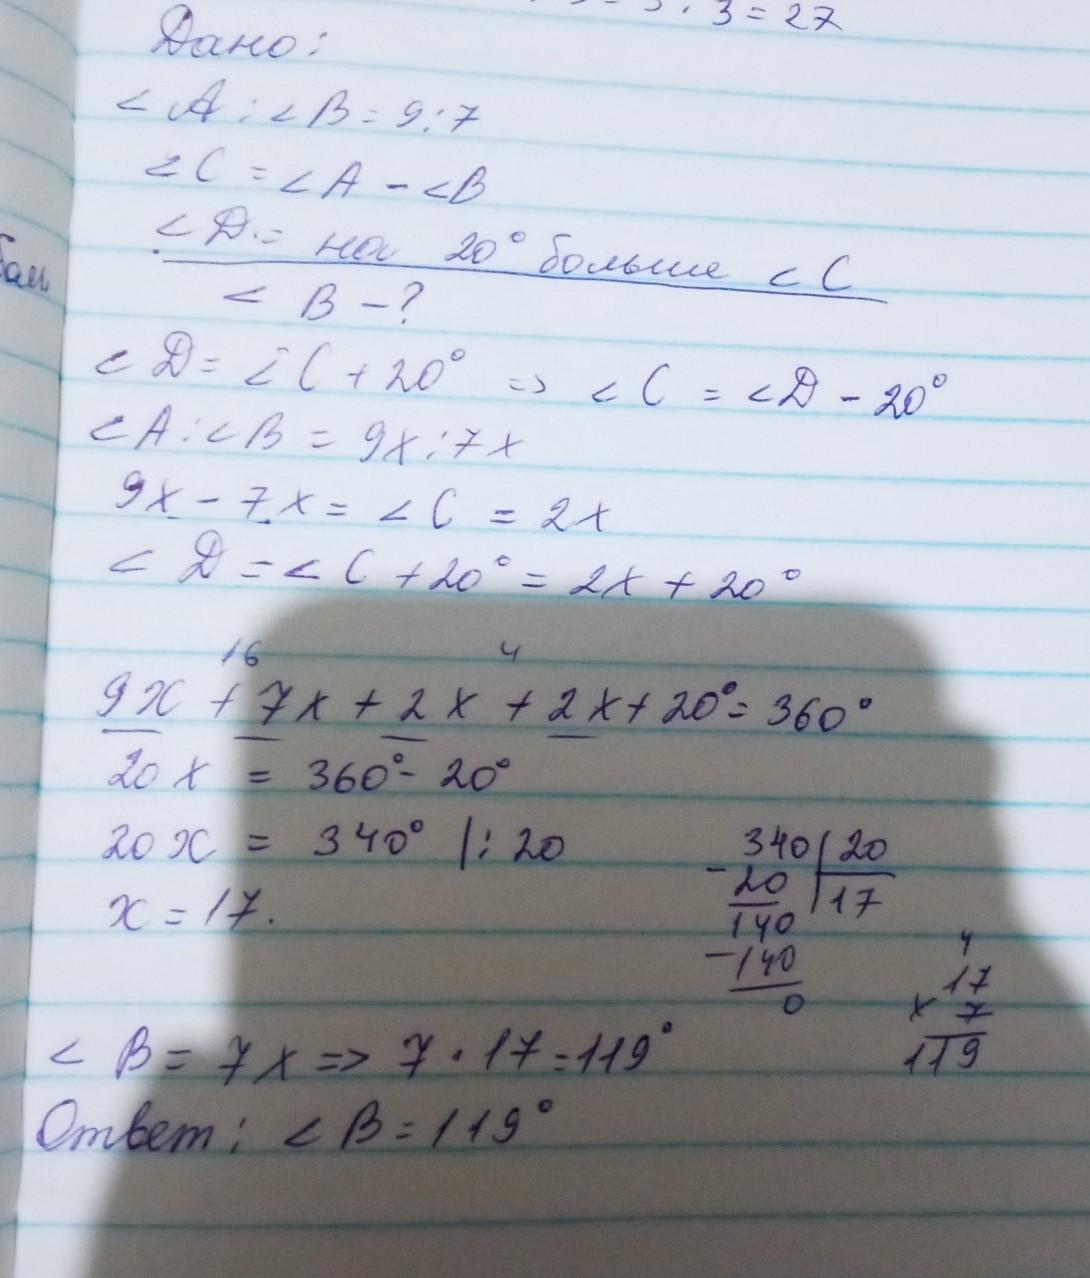 3 = 27
Дано:
∠A : ∠B = 9 : 7
∠C = ∠A - ∠B
∠D = на 20° больше ∠C
∠B - ?
∠D = ∠C + 20° => ∠C = ∠D - 20°
∠A : ∠B = 9x : 7x
9x - 7x = ∠C = 2x
∠D = ∠C + 20° = 2x + 20°
16 4
9x + 7x + 2x + 2x + 20° = 360°
20x = 360° - 20°
20x = 340° |: 20
x = 17.
340 | 20
- 20 | 17
140
- 140
0
4
17
x 7
119
∠B = 7x => 7 · 17 = 119°
Ответ: ∠B = 119°